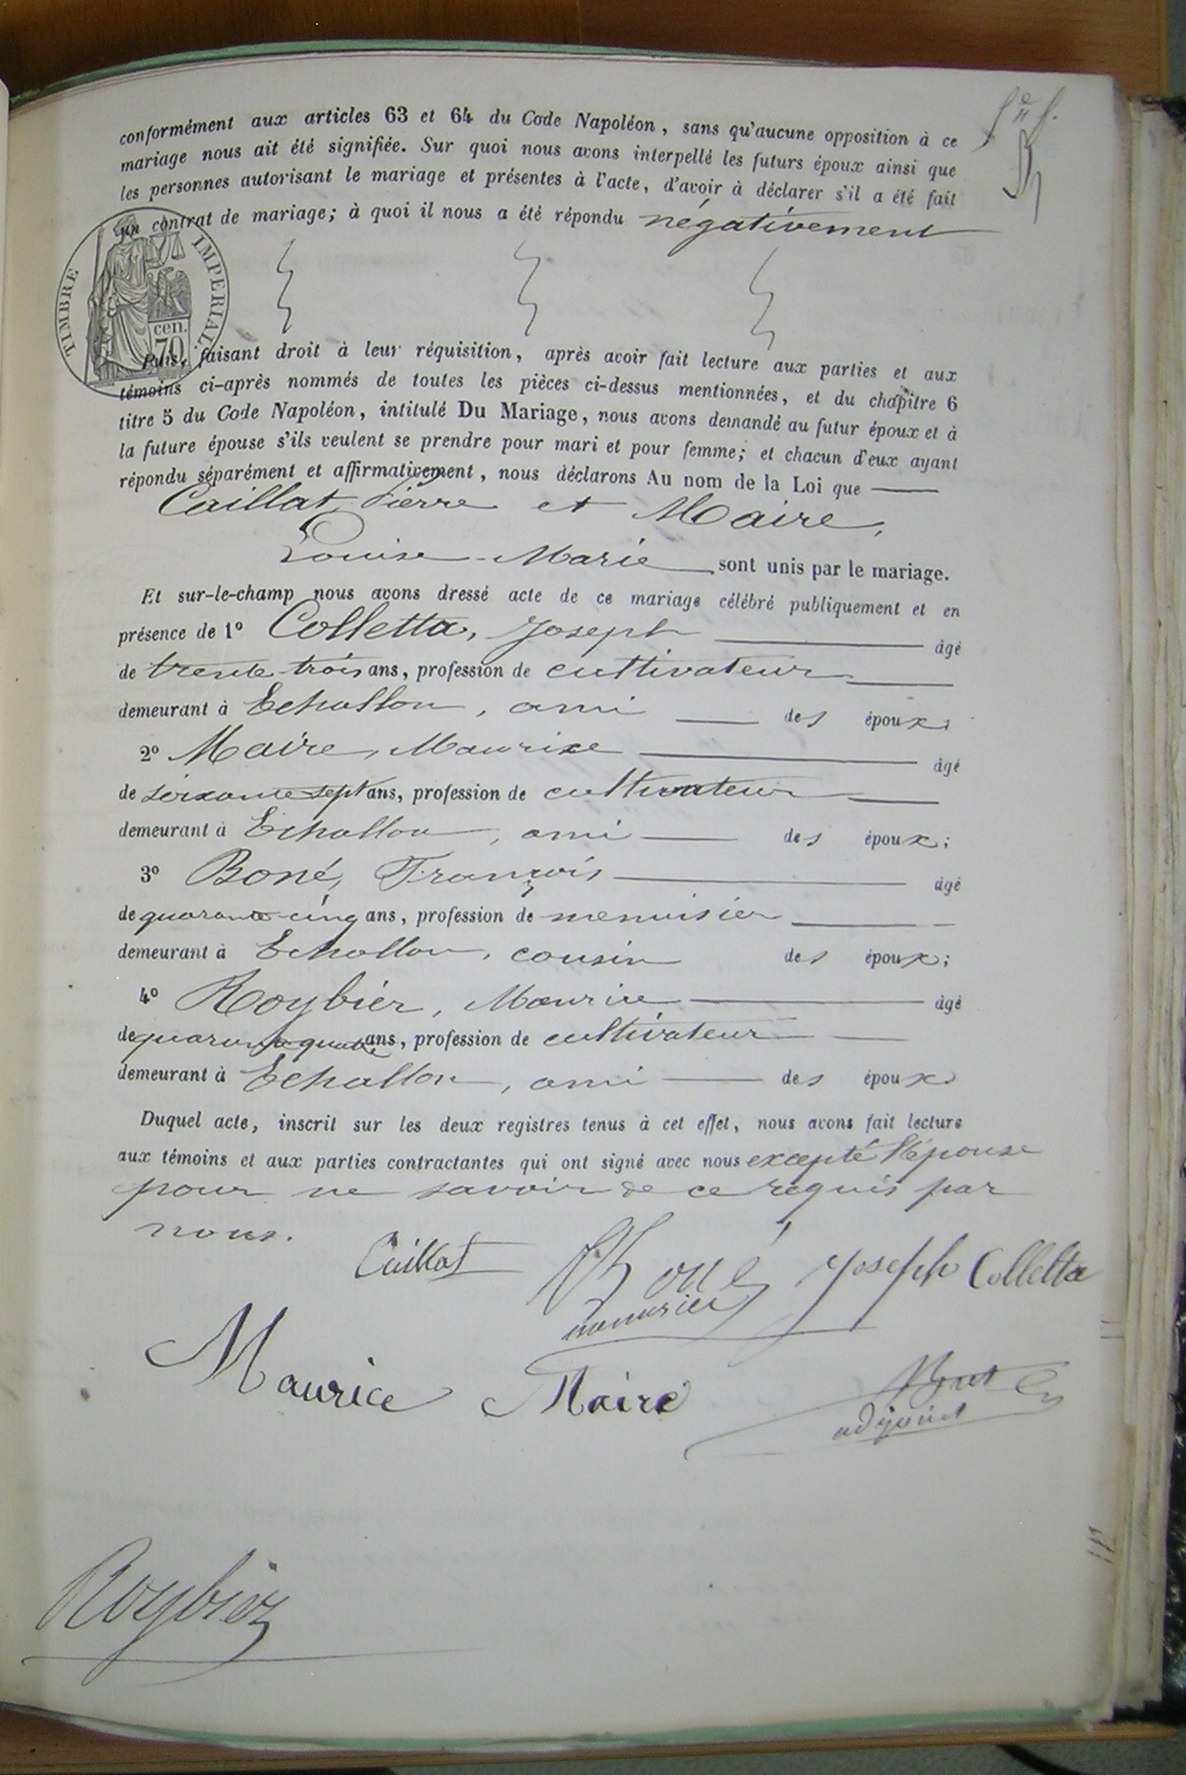 conformément aux articles 63 et 64 du Code Napoléon, sans qu'aucune opposition à ce
mariage nous ait été signifiée. Sur quoi nous avons interpellé les futurs époux ainsi que
les personnes autorisant le mariage et présentes à l'acte, d'avoir à déclarer s'il a été fait
un contrat de mariage; à quoi il nous a été répondu négativement
TIMBRE IMPERIAL
cen.
70
Puis, faisant droit à leur réquisition, après avoir fait lecture aux parties et aux
témoins ci-après nommés de toutes les pièces ci-dessus mentionnées, et du chapitre 6
titre 5 du Code Napoléon, intitulé Du Mariage, nous avons demandé au futur époux et à
la future épouse s'ils veulent se prendre pour mari et pour femme; et chacun d'eux ayant
répondu séparément et affirmativement, nous déclarons Au nom de la Loi que —
Caillat, Pierre et Maire,
Louise-Marie sont unis par le mariage.
Et sur-le-champ nous avons dressé acte de ce mariage célébré publiquement et en
présence de 1º Colletta, Joseph — âgé
de trente trois ans, profession de cultivateur —
demeurant à Echallon, ami — des époux;
2º Maire, Maurice — âgé
de soixante sept ans, profession de cultivateur —
demeurant à Echallon, ami — des époux;
3º Boné, François — âgé
de quarante-cinq ans, profession de menuisier —
demeurant à Echallon, cousin des époux;
4º Roybier, Maurice — âgé
de quarante quatre ans, profession de cultivateur —
demeurant à Echallon, ami — des époux
Duquel acte, inscrit sur les deux registres tenus à cet effet, nous avons fait lecture
aux témoins et aux parties contractantes qui ont signé avec nous excepté l'épouse
pour ne savoir de ce requis par
nous.
Caillat Boné Joseph Colletta
menusier
Maurice Maire
adjoint
Roybier